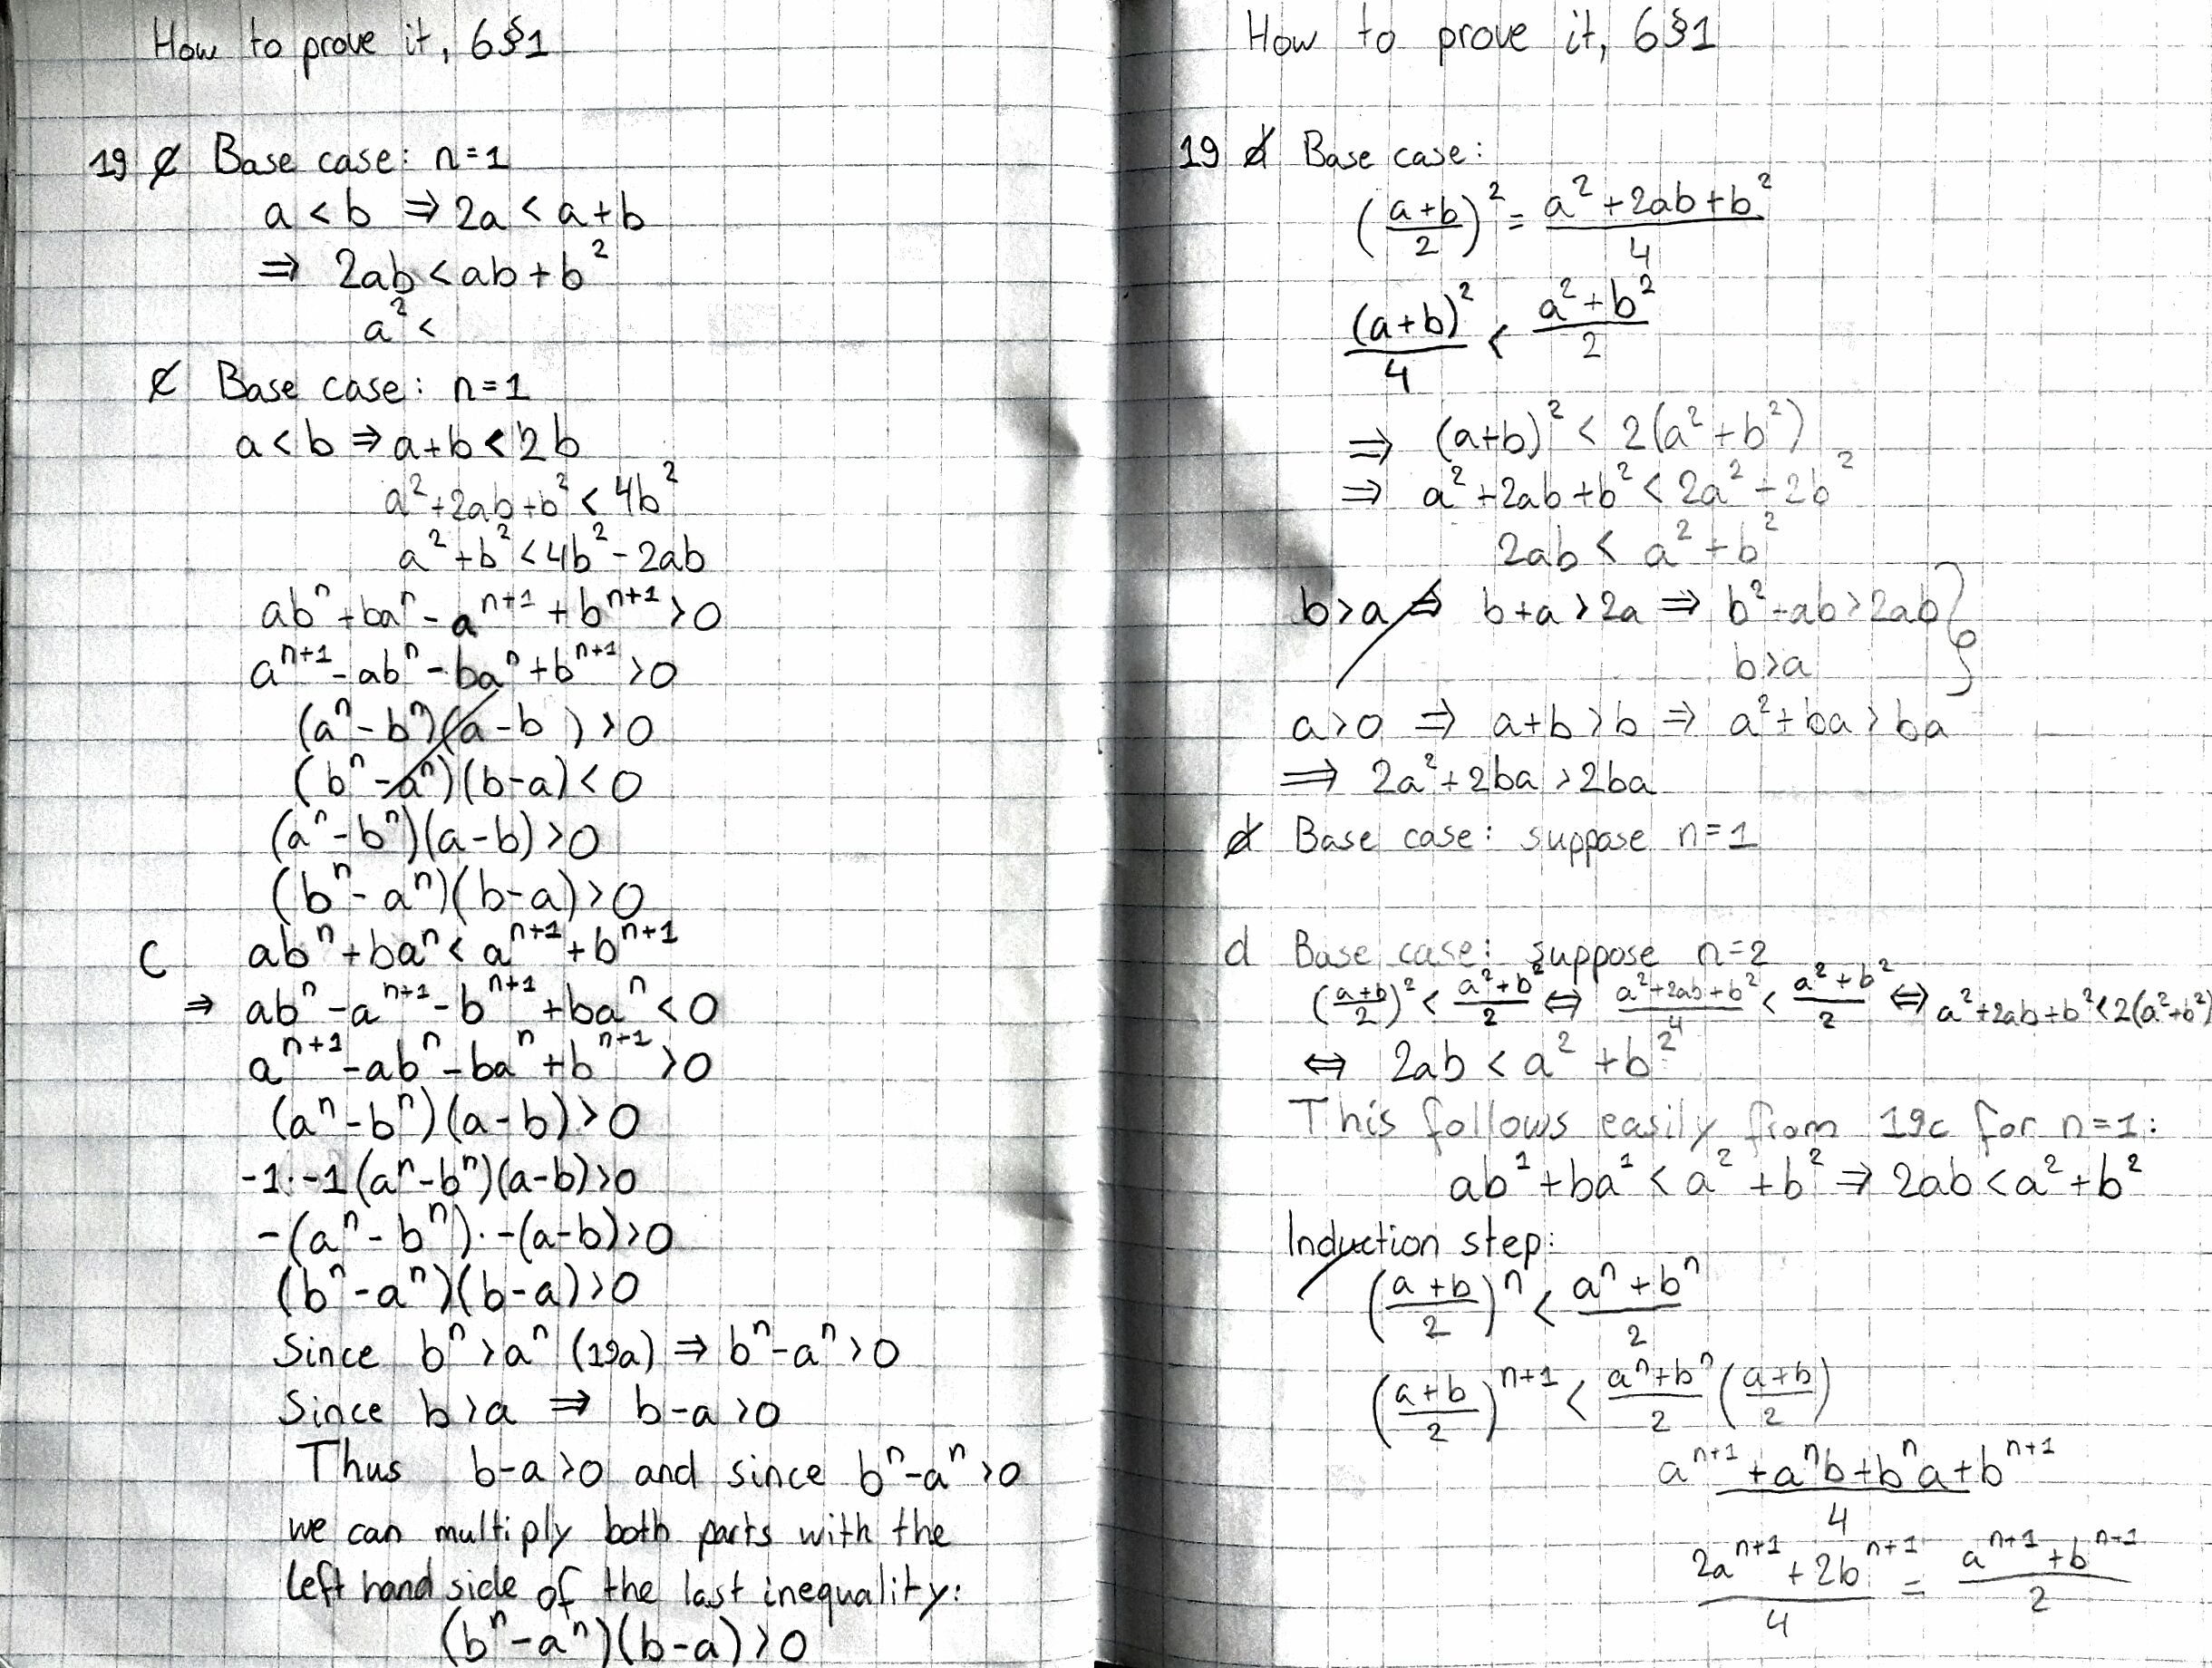 How to prove it, 6§1
19 c Base case: n=1
a < b ⇒ 2a < a+b
⇒ 2ab < ab + b²
a² <
c Base case: n=1
a < b ⇒ a+b < 2b
a²+2ab+b² < 4b²
a²+b² < 4b²-2ab
abⁿ+baⁿ-aⁿ⁺¹+bⁿ⁺¹>0
aⁿ⁺¹-abⁿ-baⁿ+bⁿ⁺¹>0
(aⁿ-bⁿ)(a-b)>0
(bⁿ-aⁿ)(b-a)<0
(aⁿ-bⁿ)(a-b)>0
(bⁿ-aⁿ)(b-a)>0
c abⁿ+baⁿ<aⁿ⁺¹+bⁿ⁺¹
⇒ abⁿ-aⁿ⁺¹-bⁿ⁺¹+baⁿ<0
aⁿ⁺¹-abⁿ-baⁿ+bⁿ⁺¹>0
(aⁿ-bⁿ)(a-b)>0
-1·-1(aⁿ-bⁿ)(a-b)>0
-(aⁿ-bⁿ)·-(a-b)>0
(bⁿ-aⁿ)(b-a)>0
Since bⁿ>aⁿ (19a) ⇒ bⁿ-aⁿ>0
Since b>a ⇒ b-a>0
Thus b-a>0 and since bⁿ-aⁿ>0
we can multiply both parts with the
left hand side of the last inequality:
(bⁿ-aⁿ)(b-a)>0
How to prove it, 6§1
19 d Base case:
((a+b)/2)² = (a²+2ab+b²)/4
(a+b)²/4 < (a²+b²)/2
⇒ (a+b)² < 2(a²+b²)
⇒ a²+2ab+b² < 2a²+2b²
2ab < a²+b²
b>a ⇒ b+a>2a ⇒ b²+ab>2ab
b>a
a>0 ⇒ a+b>b ⇒ a²+ba>ba
⇒ 2a²+2ba>2ba
d Base case: suppose n=1
d Base case: suppose n=2
((a+b)/2)² < (a²+b²)/2 ⇔ (a²+2ab+b²)/4 < (a²+b²)/2 ⇔ a²+2ab+b²<2(a²+b²)
⇔ 2ab < a²+b²
This follows easily from 19c for n=1:
ab¹+ba¹<a²+b² ⇒ 2ab<a²+b²
Induction step:
((a+b)/2)ⁿ < (aⁿ+bⁿ)/2
((a+b)/2)ⁿ⁺¹ < (aⁿ+bⁿ)/2 ((a+b)/2)
(aⁿ⁺¹+aⁿb+bⁿa+bⁿ⁺¹)/4
(2aⁿ⁺¹+2bⁿ⁺¹)/4 = (aⁿ⁺¹+bⁿ⁺¹)/2